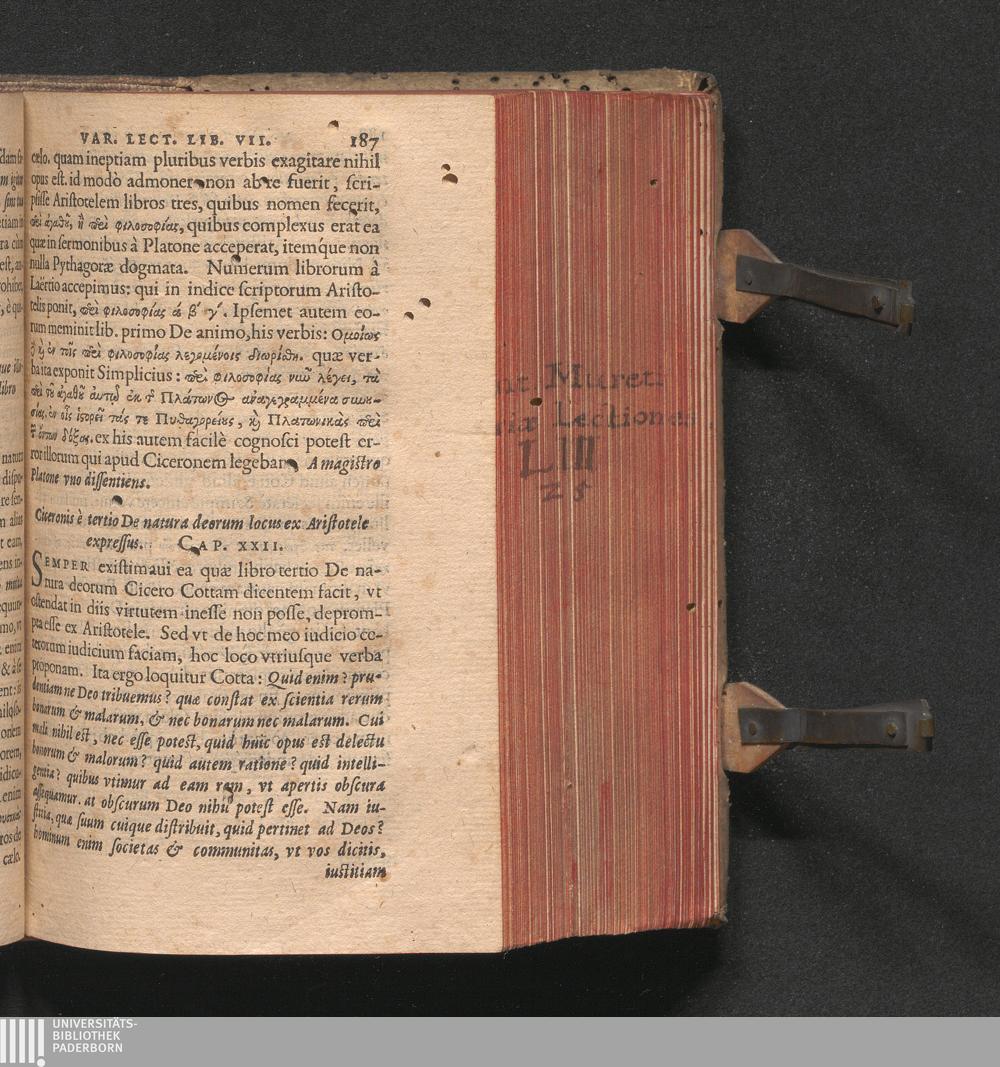 VAR. LECT. LIB. VII. 187
cælo. quam ineptiam pluribus verbis exagitare nihil
opus est. id modò admonere non ab re fuerit, scri-
psisse Aristotelem libros tres, quibus nomen fecerit,
περὶ ἀγαθοῦ, ἢ περὶ φιλοσοφίας, quibus complexus erat ea
quæ in sermonibus à Platone acceperat, itemque non
nulla Pythagoræ dogmata. Numerum librorum à
Laërtio accipimus: qui in indice scriptorum Aristo-
telis ponit, περὶ φιλοσοφίας ά β΄ γ΄. Ipsemet autem eo-
rum meminit lib. primo De animo, his verbis: Ὁμοίως
ἢ καὶ ἐν τοῖς περὶ φιλοσοφίας λεγομένοις διωρίσθη. quæ ver-
ba ita exponit Simplicius: περὶ φιλοσοφίας νῦν λέγει, τὰ
περὶ τοῦ ἀγαθοῦ αὐτῷ ἐκ τῆς Πλάτωνος ἀναγεγραμμένα συνου-
σίας, ἐν οἷς ἱστορεῖ τάς τε Πυθαγορείους, καὶ Πλατωνικὰς περὶ
τῶν ὄντων δόξας. ex his autem facilè cognosci potest er-
ror illorum qui apud Ciceronem legebant, A magistro
Platone vno dissentiens.
Ciceronis è tertio De natura deorum locus ex Aristotele
expressus. CAP. XXII.
SEMPER existimaui ea quæ libro tertio De na-
tura deorum Cicero Cottam dicentem facit, vt
ostendat in diis virtutem inesse non posse, deprom-
pta esse ex Aristotele. Sed vt de hoc meo iudicio ce-
terorum iudicium faciam, hoc loco vtriusque verba
proponam. Ita ergo loquitur Cotta: Quid enim? pru-
dentiam ne Deo tribuemus? quæ constat ex scientia rerum
bonarum & malarum, & nec bonarum nec malarum. Cui
mali nihil est, nec esse potest, quid huic opus est delectu
bonorum & malorum? quid autem ratione? quid intelli-
gentia? quibus vtimur ad eam rem, vt apertis obscura
assequamur. at obscurum Deo nihil potest esse. Nam iu-
stitia, quæ suum cuique distribuit, quid pertinet ad Deos?
hominum enim societas & communitas, vt vos dicitis,
iustitiam
Mureti
Lectiones
LIII
25
UNIVERSITÄTS-
BIBLIOTHEK
PADERBORN